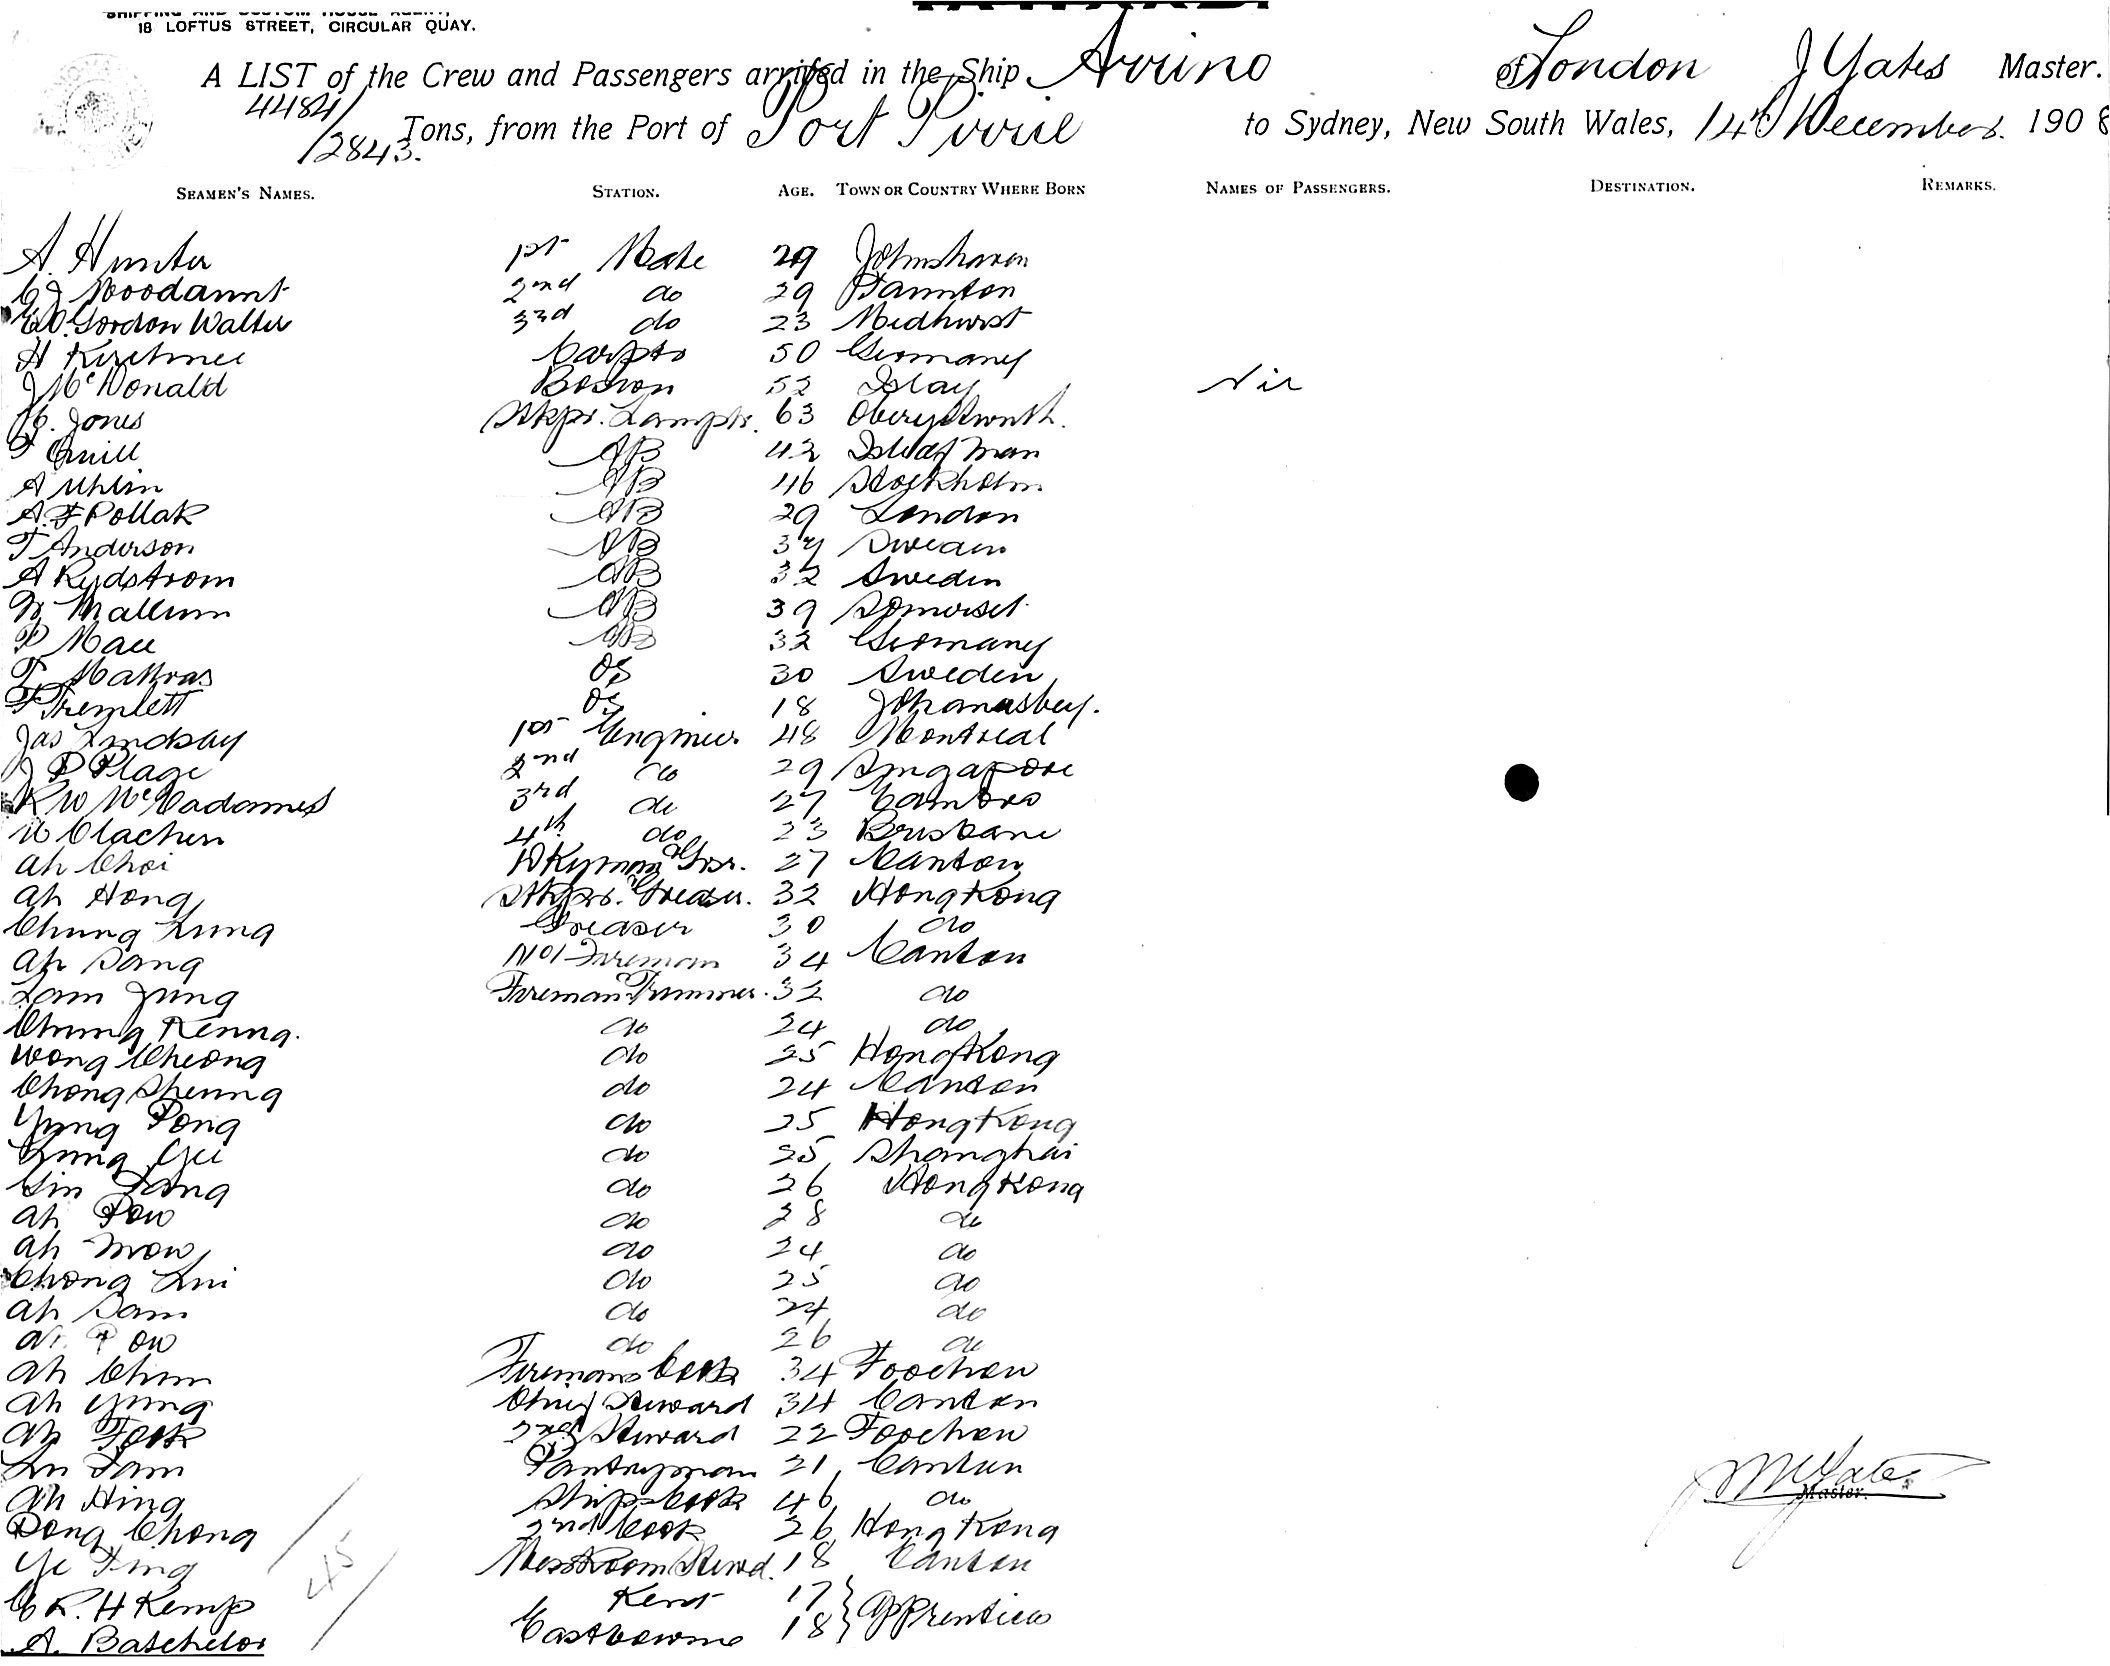 18 LOFTUS STREET, CIRCULAR QUAY.
A LIST of the Crew and Passengers arrived in the Ship Arrino of London J Yates Master.
4484/2843. Tons, from the Port of Port Pirrie to Sydney, New South Wales, 14th December. 1908
SEAMEN'S NAMES. STATION. AGE. TOWN OR COUNTRY WHERE BORN NAMES OF PASSENGERS. DESTINATION. REMARKS.
A. Hunter 1st Mate 29 Johnshaven
2nd do 29 Taunton
Gordon Walter 3rd do 23 Midhurst
H Kirchner Carptr 50 Germany
J McDonald Bosvon 52 Islay Nil
Jones Stkpr. Lamptr. 63 Oberystwnth.
Quill AB 42 Isle of Man
A Uhlin AB 46 Stockholm
A. F Pollak AB 29 London
T Anderson AB 34 Sweden
A Rydstrom AB 32 Sweden
Mallum AB 39 Somerset
P Mau AB 32 Germany
Mattras OS 30 Sweden
F Tremlett OS 18 Johanasbey.
Jas Lindsay 1st Engineer 48 Montreal
J P Plage 2nd do 29 Singapore
K W McCadames 3rd do 27
Clachen 4th do 23 Brisbane
Ah Choi DKyman & Grsr. 27 Canton
Ah Hong Stkpr. & Greaser. 32 HongKong
Chung Lung Greaser 30 do
Ah Sang No1 Fireman 34 Canton
Lam Jung Fireman & Trimmer. 32 do
Chung Kenng. do 24 do
Wong Cheong do 25 HongKong
Chong Sheung do 24 Canton
Yung Pong do 25 HongKong
do 25 Shanghai
Sin Tang do 26 HongKong
Ah Pow do 28 do
Ah Mow do 24 do
Chong Lui do 25 do
Ah Sam do 24 do
Ah Pow do 26 do
Ah Chun Firemans Cook 34 Foochow
Ah Yung Chief Steward 34 Canton
Ah Fook 2nd Steward 22 Foochow
Lu Tam Pantryman 21 Canton
Ah Hing Ships Cook 46 do
Dong Chong 2nd Cook 26 Hong Kong
Ye Ting Messroom Stewd. 18 Canton
C R. H Kemp Kent 17 } Apprentices
A. Batchelor Eastbourne 18 }
45
Yates
Master.